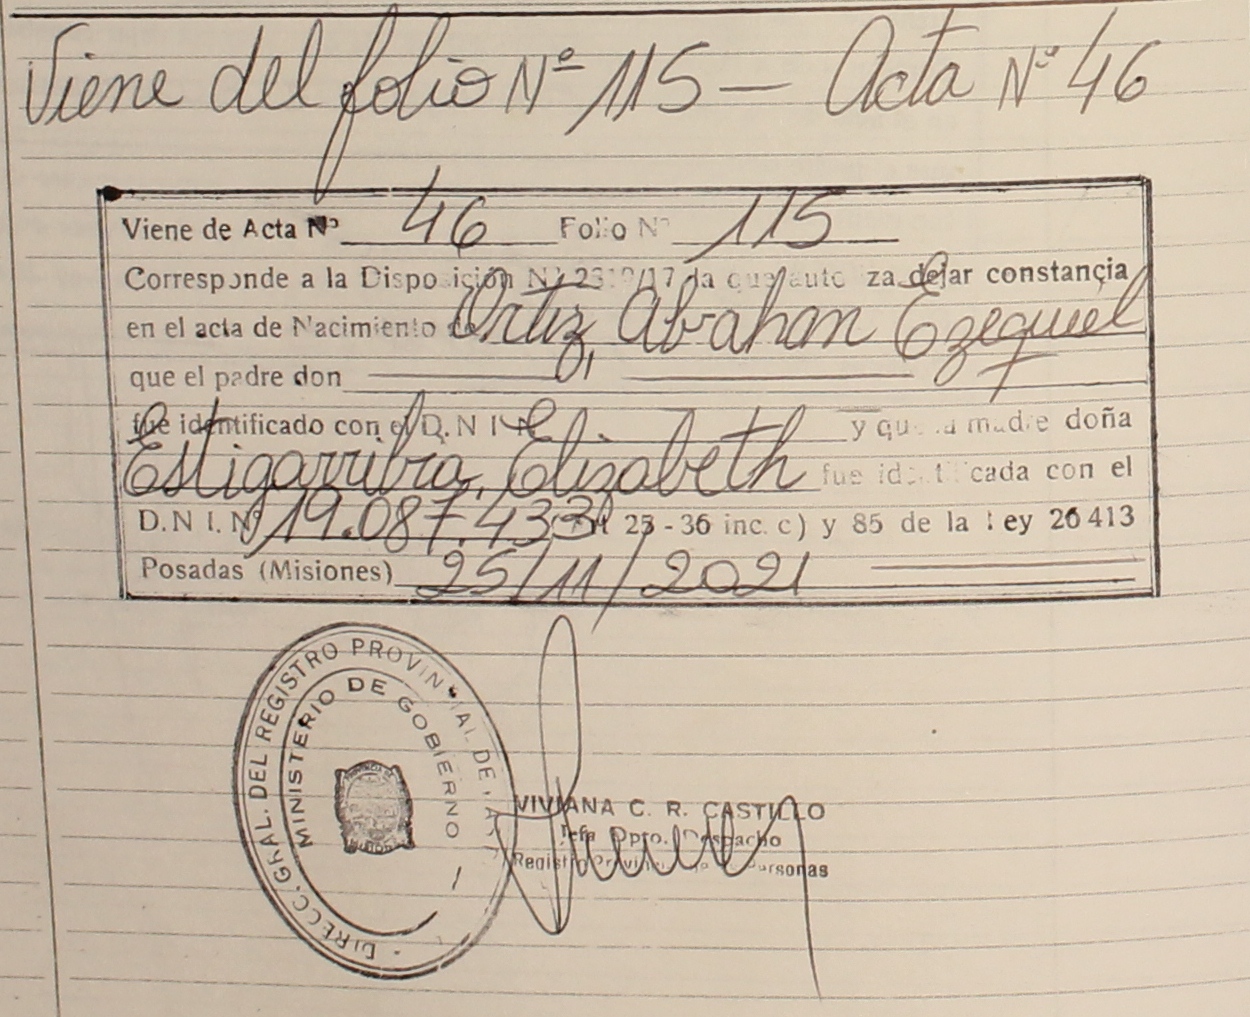 Viene del folio Nº 115 — Acta Nº 46
Viene de Acta Nº 46 Folio Nº 115
Corresponde a la Disposición Nº /17 la que autoriza dejar constancia
en el acta de Nacimiento de Ortiz, Abrahan Ezequiel
que el padre don
fue identificado con el D.N I Nº y que la madre doña
Estigarribia, Elizabeth fue identificada con el
D.N I. Nº 19.087.433 Art 23 - 36 inc. c) y 85 de la Ley 26413
Posadas (Misiones) 25/11/2021
DIRECC. GRAL. DEL REGISTRO PROVINCIAL DE LAS
MINISTERIO DE GOBIERNO
VIVIANA C. R. CASTILLO
Jefa Dpto. Despacho
Registro Provincial de las Personas